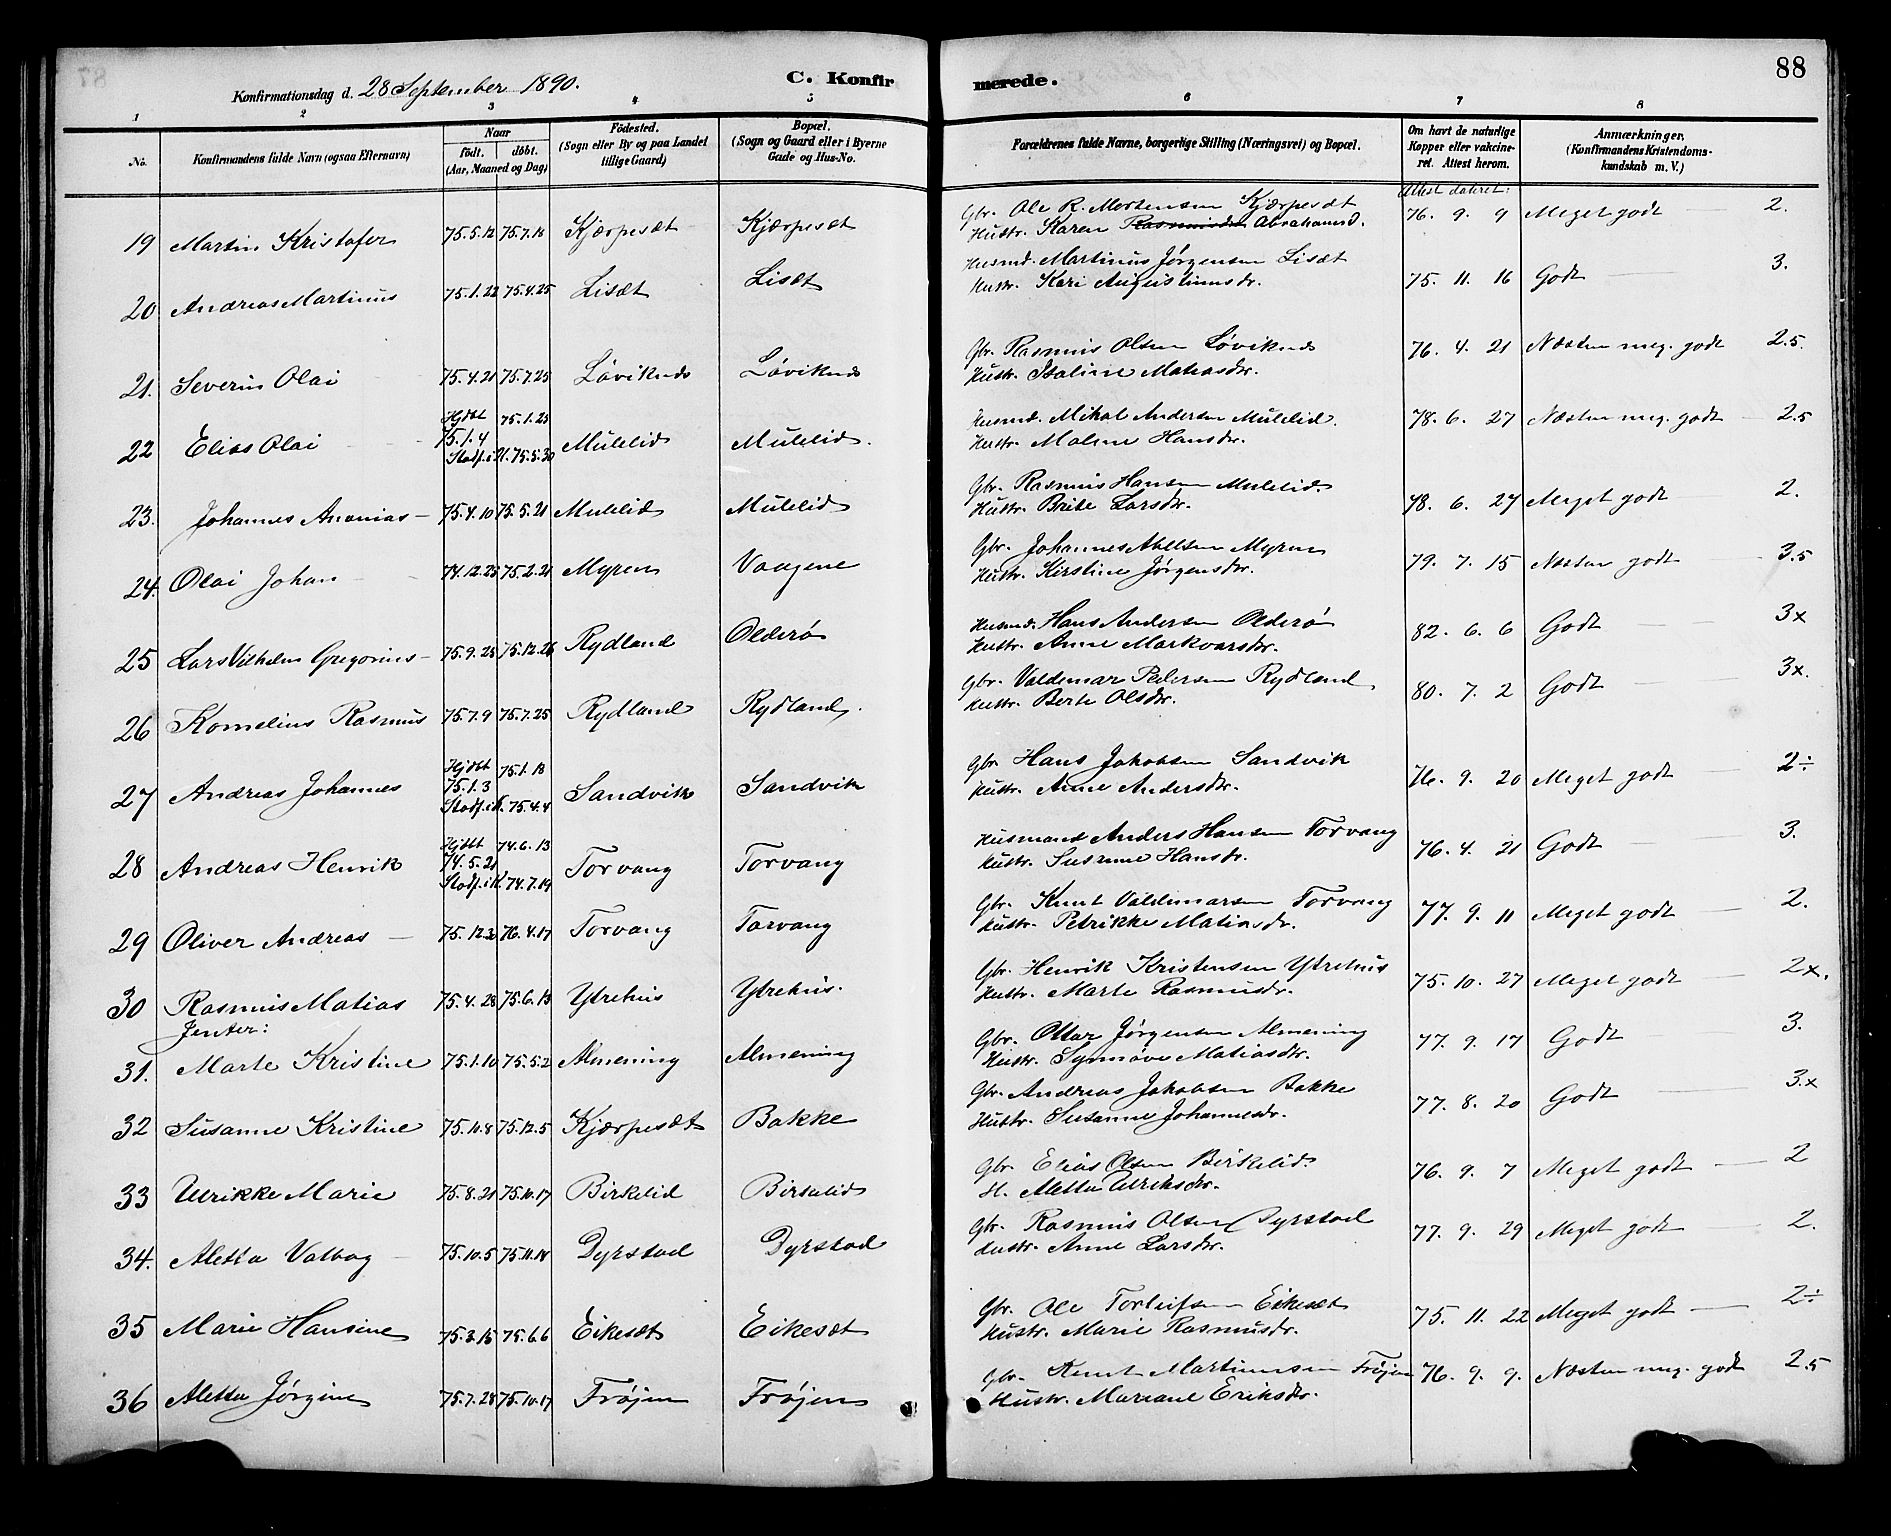 87
Konfirmationsdag d. 28 September 1890.
C. Konfirmerede.
88
1 2 3 4 5 6 7 8
No.
Konfirmandens fulde Navn (ogsaa Efternavn)
Naar
födt. döbt.
(Aar, Maaned og Dag)
Födested.
(Sogn eller By og paa Landet
tillige Gaard)
Bopæl.
(Sogn og Gaard eller i Byerne
Gade og Hus-No.
Forældrenes fulde Navne, borgerlige Stilling (Næringsvei) og Bopæl.
Om havt de naturlige
Kopper eller vakcine-
ret. Attest herom.
Anmærkninger.
(Konfirmandens Kristendoms-
kundskab m. V.)
Attest dateret:
19 Martin Kristofer 75.5.12 75.7.18 Kjærpesæt Kjærpesæt Gbr. Ole R. Mortensen Kjærpesæt 76. 9. 9 Meget godt 2.
Hustr. Karen Rasmusdr Abrahamsd.
20 Andreas Martinus 75.1.22 75.4.25 Lisæt Lisæt Husmd. Martinus Jørgensen Lisæt 75. 11. 16 Godt 3.
Hustr. Kari Augustinusdr.
21. Severin Olai 75.4.21 75.7.25 Løviknes Løviknes Gbr. Rasmus Olsen Løviknes 76. 4. 21 Næsten meg. godt 2.5.
Hustr. Staline Matiasdr.
22 Elias Olai Hjdbt 75.1.4 75.1.25 Stadf. i K. 75.5.30 Mulelid Mulelid. Husmd. Mikal Andersen Mulelid. 78. 6. 27 Næsten meg. godt 2.5
Hustr. Malene Hansdr.
23. Johannes Ananias 75.4.10 75.5.21 Mulelid Mulelid Gbr. Rasmus Hansen Mulelid. 78. 6. 27 Meget godt 2.
Hustr. Brite Larsdr.
24. Olai Johan 74.12.25 75.2.21 Myren Vaagene Gbr. Johannes Abelsen Myren 79. 7. 15 Næsten godt 3.5
Hustr. Kirstine Jørgensdr.
25 Lars Vilhelm Gregorius 75.9.25 75.12.26 Rydland Olderø Husmd. Hans Andersen Olderø 82. 6. 6 Godt 3x
Hustr. Anne Markvarsdr.
26 Kornelius Rasmus 75.7.9 75.7.25 Rydland Rydland. Gbr. Valdemar Pedersen Rydland 80. 7. 2 Godt 3x.
Hustr. Berte Olsdr.
27 Andreas Johannes Hjdbt 75.1.3 75.1.18 Stadf. i K. 75.4.4 Sandvik Sandvik Gbr Hans Jakobsen Sandvik 76. 9. 20 Meget godt 2÷
Hustr. Anne Andersdr.
28 Andreas Henrik Hjdbt 74.5.21 74.6.13 Stadf. i K. 74.7.19 Torvang Torvang Husmand Anders Hansen Torvang 76. 4. 21 Godt 3.
Hustr. Susanne Hansdr.
29 Oliver Andreas 75.12.30 76.4.17 Torvang Torvang Gbr. Knut Valdemarsen Torvang 77. 9. 11 Meget godt 2.
Hustr. Petrikke Matiasdr.
30 Rasmus Matias 75.4.28 75.6.13 Ytrehus Ytrehus. Gbr. Henrik Kristensen Ytrehus 75. 10. 27 Meget godt 2x.
Hustr. Marte Rasmusdr.
Jenter:
31. Marte Kristine 75.1.10 75.5.2 Almening Almening Gbr. Ottar Jørgensen Almening 77. 9. 17 Godt 3.
Hustr. Synnøve Matiasdr.
32 Susanne Kristine 75.10.8 75.12.5 Kjærpesæt Bakke Gbr. Andreas Jakobsen Bakke 77. 8. 20 Godt 3.x
Hustr. Susanne Johannesdr.
33 Ulrikke Marie 75.8.21 75.10.17 Birkelid Birkelid Gbr. Elias Olsen Birkelid. 76. 9. 7 Meget godt 2
H. Aletta Ulriksdr.
34. Aletta Valbog 75.10.5 75.11.14 Dyrstad Dyrstad Gbr. Rasmus Olsen Dyrstad 77. 9. 29 Meget godt 2.
Hustr. Anne Larsdr.
35 Marie Hansine 75.3.15 75.6.6 Eikesæt Eikesæt Gbr. Ole Torleifsen Eikesæt 75. 11. 22 Meget godt 2÷
Hustr. Marie Rasmusdr.
36 Aletta Jørgine 75.7.28 75.10.17 Frøjen Frøjen Gbr. Knut Martinusen Frøjen 76. 9. 9. Næsten meg. godt 2.5
Hustr. Mariane Eriksdr.